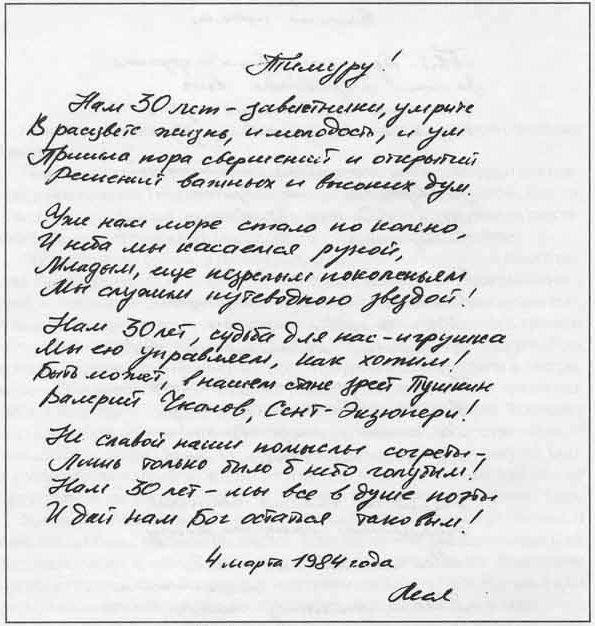 Тимуру!
Нам 30 лет - завистники, умрите
В расцвете жизнь, и молодость, и ум
Пришла пора свершений и открытий
Решений важных и высоких дум.
Уже нам море стало по колено,
И неба мы касаемся рукой,
Младым, еще незрелым поколеньям
Мы служим путеводною звездой!
Нам 30 лет, судьба для нас - игрушка
Мы ею управляем, как хотим!
Быть может, в нашем стане зреет Пушкин
Валерий Чкалов, Сент-Экзюпери!
Не славой наши помыслы согреты -
Лишь только было б небо голубым!
Нам 30 лет - мы все в душе поэты
И дай нам Бог остаться таковым!
4 марта 1984 года